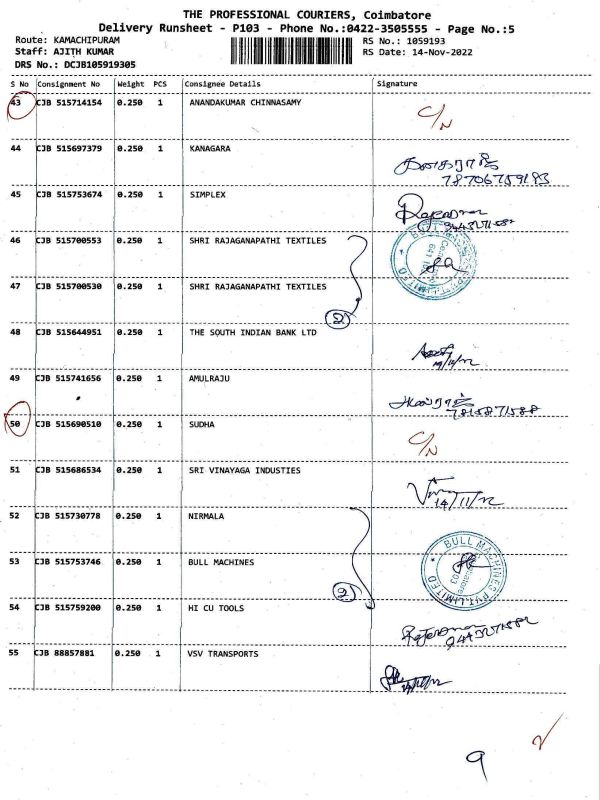 THE PROFESSIONAL COURIERS, Coimbatore
Delivery Runsheet - P103 - Phone No.:0422-3505555 - Page No.:5
Route: KAMACHIPURAM RS No.: 1059193
Staff: AJITH KUMAR RS Date: 14-Nov-2022
DRS No.: DCJB105919305
S No Consignment No Weight PCS Consignee Details Signature
43 CJB 515714154 0.250 1 ANANDAKUMAR CHINNASAMY C/N
44 CJB 515697379 0.250 1 KANAGARA கனகராஜ்
78706759193
45 CJB 515753674 0.250 1 SIMPLEX
46 CJB 515700553 0.250 1 SHRI RAJAGANAPATHI TEXTILES
47 CJB 515700530 0.250 1 SHRI RAJAGANAPATHI TEXTILES
2
48 CJB 515644951 0.250 1 THE SOUTH INDIAN BANK LTD
14/11/22
49 CJB 515741656 0.250 1 AMULRAJU
7815871588
50 CJB 515690510 0.250 1 SUDHA C/N
51 CJB 515686534 0.250 1 SRI VINAYAGA INDUSTIES
14/11/22
52 CJB 515730778 0.250 1 NIRMALA
53 CJB 515753746 0.250 1 BULL MACHINES BULL MACHINES PVT.LIMITED
2
54 CJB 515759200 0.250 1 HI CU TOOLS
55 CJB 88857881 0.250 1 VSV TRANSPORTS
14/11/22
9